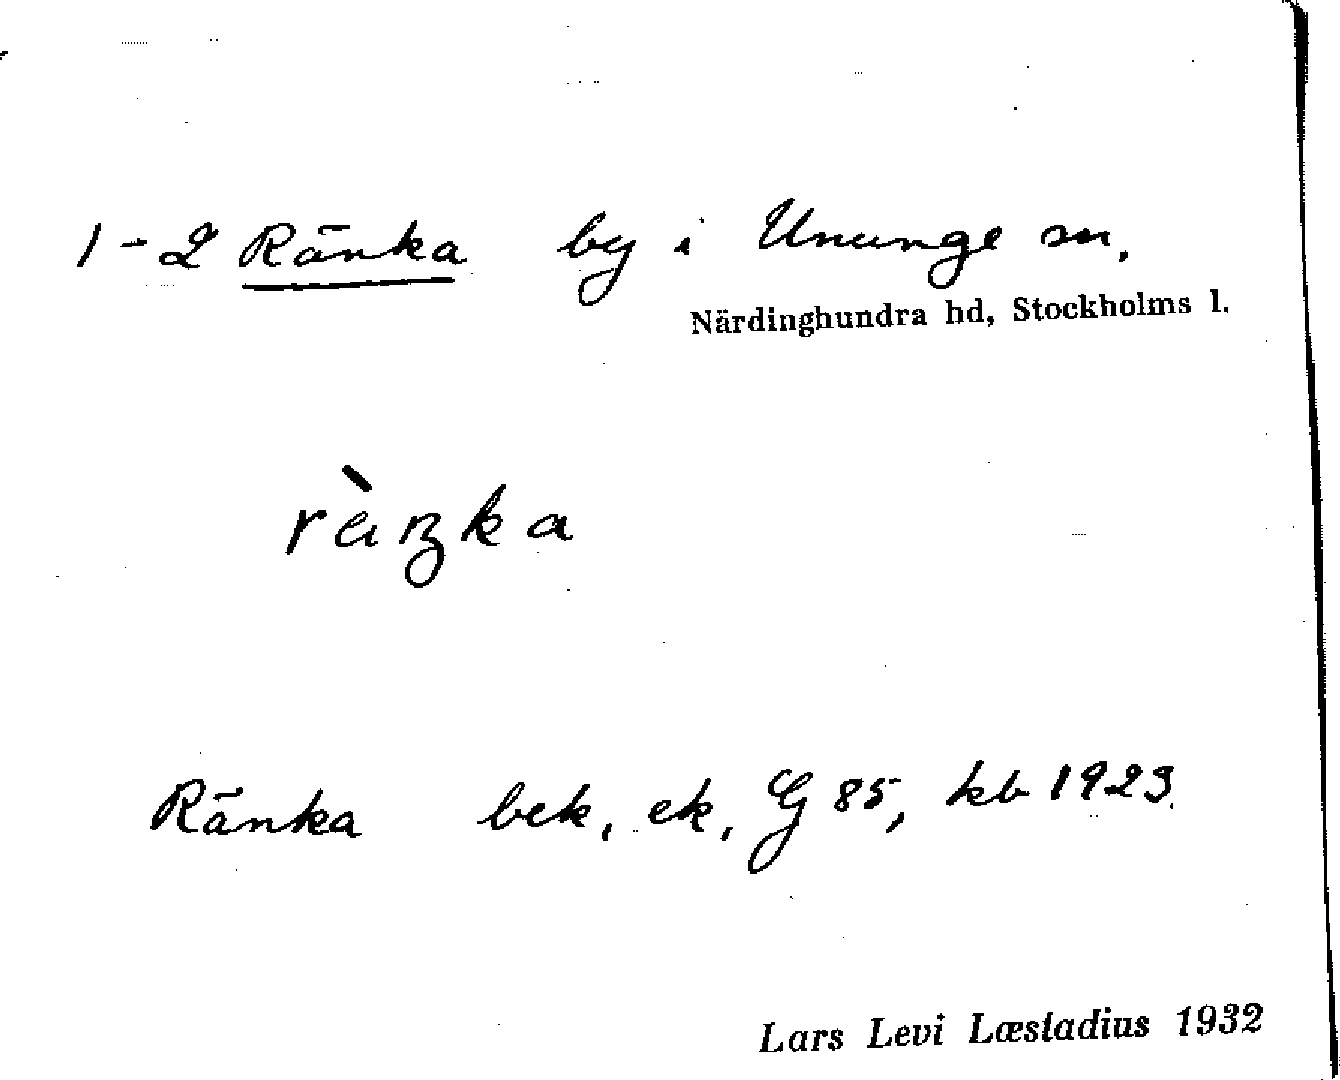 1-2 Ränka by i Ununge sn.
Närdinghundra hd, Stockholms l.
Ränka bek, ek, G 85, kb 1923.
Lars Levi Læstadius 1932